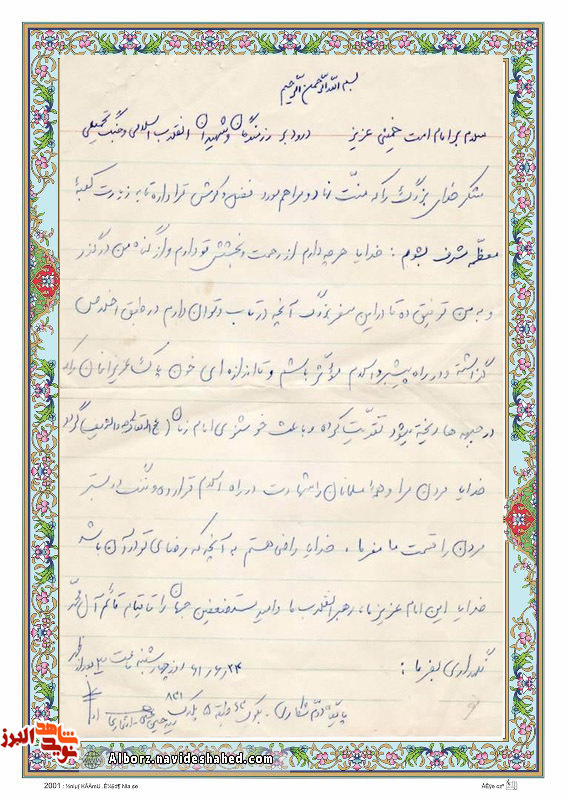 بسم الله الرحمن الرحیم
سلام بر امام امت خمینی عزیز درود بر رزمندگان و شهیدان انقلاب اسلامی و جنگ تحمیلی
شکر خدای بزرگ را که منت نهاد و مرا هم مورد فضل و کرمش قرار داد تا به زیارت کعبهٔ
معظّمه مشرف بشوم : خدایا هر چه دارم از رحمت و بخشش تو دارم و از گناه من درگذر
و به من توفیق ده تا در این سفر بزرگ آنچه در تاب و توان دارم در طبق اخلاص
گذاشته و در راه پیشبرد اسلام مؤثر باشم و تا اندازه ای خون پاک عزیزانمان را که
در جبهه ها ریخته میشود تقویت کرده و باعث خوشنودی امام زمان (عج) گردم
خدایا مردن مرا و همه مسلمانان را شهادت در راه اسلام قرار ده و ننگ در بستر
مردن را قسمت ما مفرما . خدایا راضی هستم به آنچه که رضای تو در آن باشد
خدایا این امام عزیز ما، رهبر انقلاب ما و امید مستضعفین جهان را تا قیام قائم آل محمّد
نگهداری بفرما :
۶۱/۶/۲۴ روز چهارشنبه ساعت ۳ بعد از ظهر
طبقه ۵ بلوک ۸۳۱
شاهد
نوید
البرز
Alborz.navideshahed.com
2001